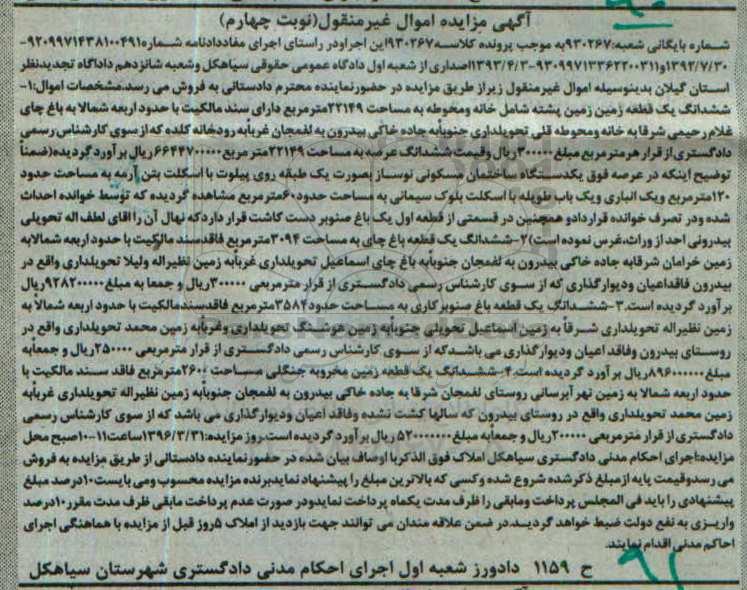 آگهی مزایده اموال غیرمنقول(نوبت چهارم)
شماره بایگانی شعبه:۹۳۰۲۶۷به موجب پرونده کلاسه۹۳۰۲۶۷این اجرادر راستای اجرای مفاددادنامه شماره۹۲۰۹۹۷۱۴۳۸۱۰۰۴۹۱-
۱۳۹۲/۷/۳۰و۹۳۰۹۹۷۱۳۳۶۲۲۰۰۳۱۱-۱۳۹۳/۴/۳اصداری از شعبه اول دادگاه عمومی حقوقی سیاهکل وشعبه شانزدهم دادگاه تجدیدنظر
استان گیلان بدینوسیله اموال غیرمنقول زیراز طریق مزایده در حضورنماینده محترم دادستانی به فروش می رسد.مشخصات اموال:۱-
ششدانگ یک قطعه زمین زمین پشته شامل خانه ومحوطه به مساحت ۲۲۱۴۹مترمربع دارای سند مالکیت با حدود اربعه شمالا به باغ چای
غلام رحیمی شرقا به خانه ومحوطه قلی تحویلداری جنوبآبه جاده خاکی بیدرون به لفمجان غربآبه رودخانه کلده که از سوی کارشناس رسمی
دادگستری از قرار هرمترمربع مبلغ ۳۰۰۰۰۰ریال وقیمت ششدانگ عرصه به مساحت ۲۲۱۴۹مترمربع ۶۶۴۴۷۰۰۰۰۰ریال برآورد گردیده(ضمنآ
توضیح اینکه در عرصه فوق یکدستگاه ساختمان مسکونی نوساز بصورت یک طبقه روی پیلوت با اسکلت بتن آرمه به مساحت حدود
۱۲۰مترمربع ویک انباری ویک باب طویله با اسکلت بلوک سیمانی به مساحت حدود۶۰مترمربع مشاهده گردیده که توسط خوانده احداث
شده ودر تصرف خوانده قراردادو همچنین در قسمتی از قطعه اول یک باغ صنوبر دست کاشت قرار داردکه نهال آن راآقای لطف اله تحویلی
بیدرونی احد از وراث،غرس نموده است)۲-ششدانگ یک قطعه باغ چای به مساحت ۳۰۹۴مترمربع فاقدسند مالکیت با حدود اربعه شمالابه
زمین خرامان شرقابه جاده خاکی بیدرون به لفمجان جنوبآبه باغ چای اسماعیل تحویلداری غربآبه زمین نظیراله ولیلا تحویلداری واقع در
بیدرون فاقداعیان ودیوارگذاری که از سوی کارشناس رسمی دادگستری از قرار مترمربعی ۳۰۰۰۰۰ریال و جمعا به مبلغ۹۲۸۲۰۰۰۰۰ریال
برآورد گردیده است.۳-ششدانگ یک قطعه باغ صنوبرکاری به مساحت حدود۳۵۸۴مترمربع فاقدسندمالکیت با حدود اربعه شمالآ به
زمین نظیراله تحویلداری شرقآ به زمین اسماعیل تحویلی جنوبآبه زمین هوشنگ تحویلداری وغربآبه زمین محمد تحویلداری واقع در
روستای بیدرون وفاقد اعیان ودیوارگذاری می باشدکه از سوی کارشناس رسمی دادگستری از قرار مترمربعی ۲۵۰۰۰۰ریال و جمعآبه
مبلغ۸۹۶۰۰۰۰۰۰ریال برآورد گردیده است.۴-ششدانگ یک قطعه زمین مخروبه جنگلی مساحت ۲۶۰۰مترمربع فاقد سند مالکیت با
حدود اربعه شمالا به زمین نهرآبرسانی روستای لفمجان شرقا به جاده خاکی بیدرون به لفمجان جنوبآبه زمین نظیراله تحویلداری غربآبه
زمین محمد تحویلداری واقع در روستای بیدرون که سالها کشت نشده وفاقد اعیان ودیوارگذاری می باشد که از سوی کارشناس رسمی
دادگستری از قرار مترمربعی ۲۰۰۰۰۰ریال و جمعآبه مبلغ ۵۲۰۰۰۰۰۰۰ریال برآورد گردیده است.روز مزایده:۱۳۹۶/۳/۳۱ساعت۱۱-۱۰صبح محل
مزایده:اجرای احکام مدنی دادگستری سیاهکل املاک فوق الذکربا اوصاف بیان شده در حضورنماینده دادستانی از طریق مزایده به فروش
می رسدوقیمت پایه ازمبلغ ذکرشده شروع شده وکسی که بالاترین مبلغ را پیشنهاد نمایدبرنده مزایده محسوب ومی بایست۱۰درصد مبلغ
پیشنهادی را باید فی المجلس پرداخت ومابقی را ظرف مدت یکماه پرداخت نمایدودر صورت عدم پرداخت مابقی ظرف مدت مقرر۱۰درصد
واریزی به نفع دولت ضبط خواهد گردید.در ضمن علاقه مندان می توانند جهت بازدید از املاک ۵روز قبل از مزایده با هماهنگی اجرای
احاکم مدنی اقدام نمایند.
ح ۱۱۵۹ دادورز شعبه اول اجرای احکام مدنی دادگستری شهرستان سیاهکل